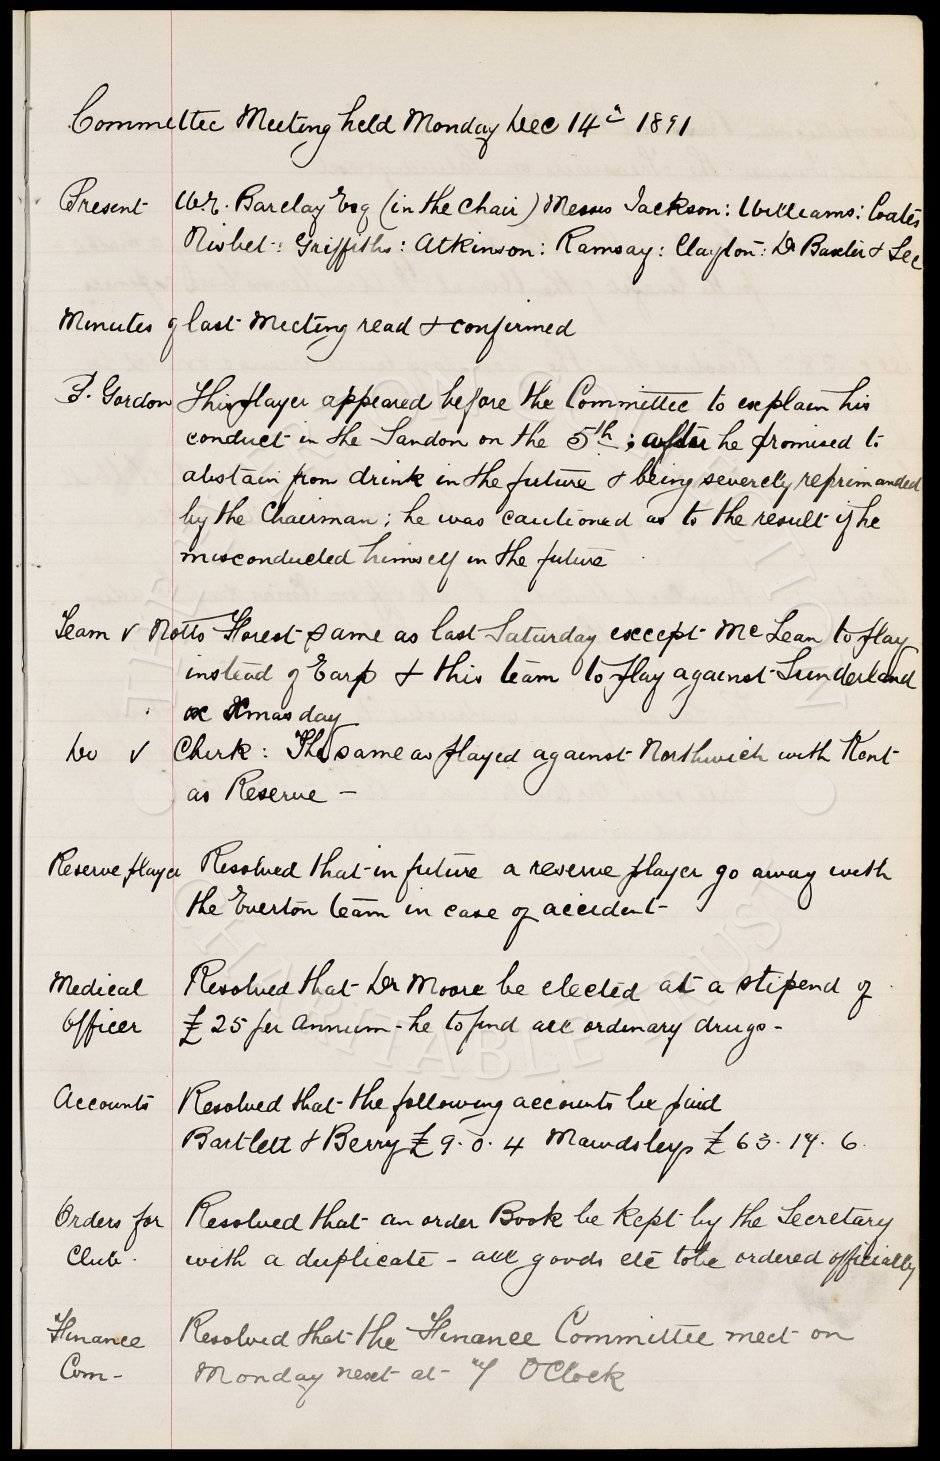 Committee Meeting held Monday Dec 14th 1891
Present W.E. Barclay Esq (in the Chair) Messrs Jackson: Williams: Coates
Nisbet: Griffiths: Atkinson: Ramsay: Clayton: Dr Baxter & Sec
Minutes of last Meeting read & confirmed
P. Gordon This player appeared before the Committee to explain his
conduct in the Sandon on the 5th; after he promised to
abstain from drink in the future & being severely reprimanded
by the Chairman; he was cautioned as to the result if he
misconducted himself in the future
Team v Notts Forest same as last Saturday except McLean to play
instead of Earp & this team to play against Sunderland
on Xmas day
Do v Chirk: The same as played against Northwich with Kent
as Reserve —
Reserve player Resolved that in future a reserve player go away with
the Everton team in case of accident -
Medical Resolved that Dr Moore be elected at a stipend of
Officer £25 per annum - he to find all ordinary drugs -
Accounts Resolved that the following accounts be paid
Bartlett & Berry £9.0.4 Mawdsleys £63.14.6
Orders for Resolved that an order Book be kept by the Secretary
Club. with a duplicate - all goods etc to be ordered officially
Finance Resolved that the Finance Committee meet on
Com - Monday next at 7 OClock
CHARITABLE TRUST